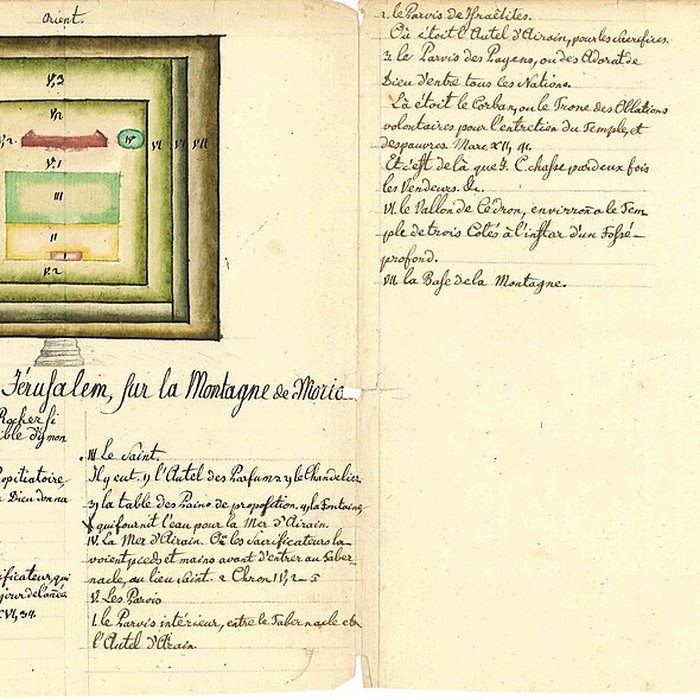 Orient.
V,3
V,2
V,2.
IV
VI
VII
VII
V.1
III
II
I
V.2
Jérusalem, sur la Montagne de Moria
Rocher si
ible d'y mon
opitiatoire,
Dieu donna
ificateur, qui
jour de l'année
XVI, 34.
III Le Saint.
Il y eut. 1) l'Autel des Parfums 2) le Chandelier,
3) la table des Pains de proposition. 4) la Fontaine,
qui fournit l'eau pour la Mer d'Airain.
IV. La Mer d'Airain. Où les Sacrificateurs la-
voient pieds et mains avant d'entrer au Taber-
nacle, au lieu Saint. 2 Chron IV, 2-5
V. Les Parvis
1. le Parvis intérieur, entre le Tabernacle et
l'Autel d'Airain.
2. le Parvis de Israëlites.
Où étoit l'Autel d'Airain, pour les sacrifices.
3. le Parvis des Payens, ou des Adorat de
Dieu d'entre tous les Nations.
Là étoit le Corban, ou le Trone des Oblations
volontaires pour l'entretien du Temple, et
des pauvres. Marc XII, 41.
Et c'est de là que J. C. chasse par deux fois
les Vendeurs. &c.
VI. le Vallon de Cédron, environna le Tem
ple de trois Cotés à l'instar d'un Fossé-
profond.
VII. la Base de la Montagne.